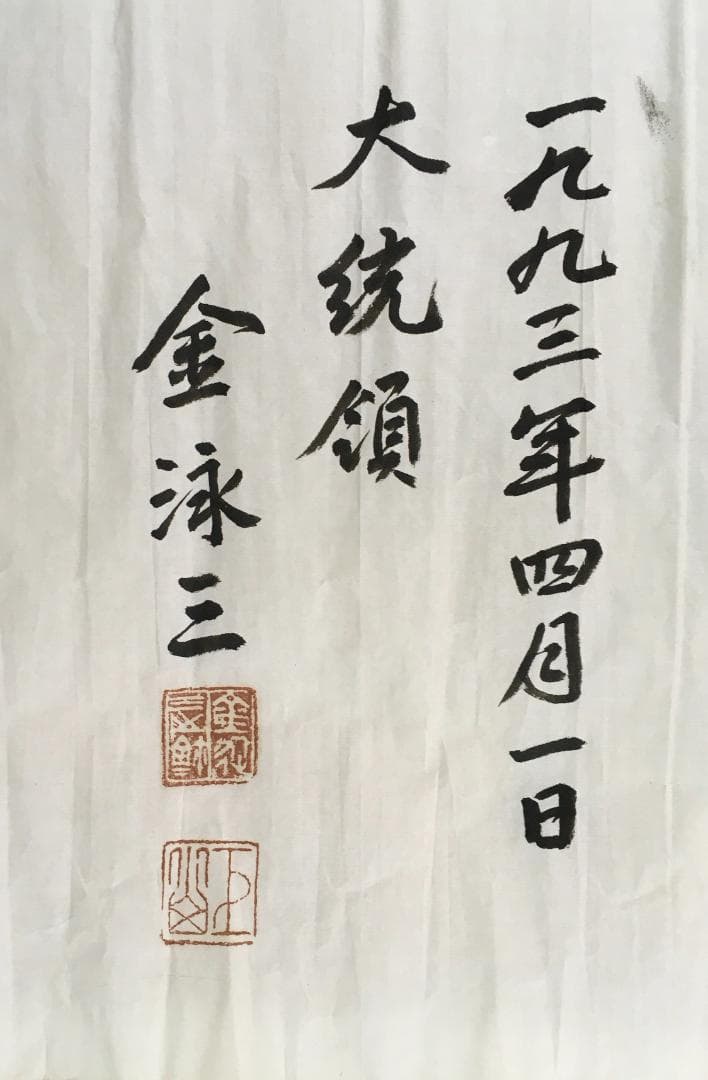 一九九三年四月一日
大統領
金泳三